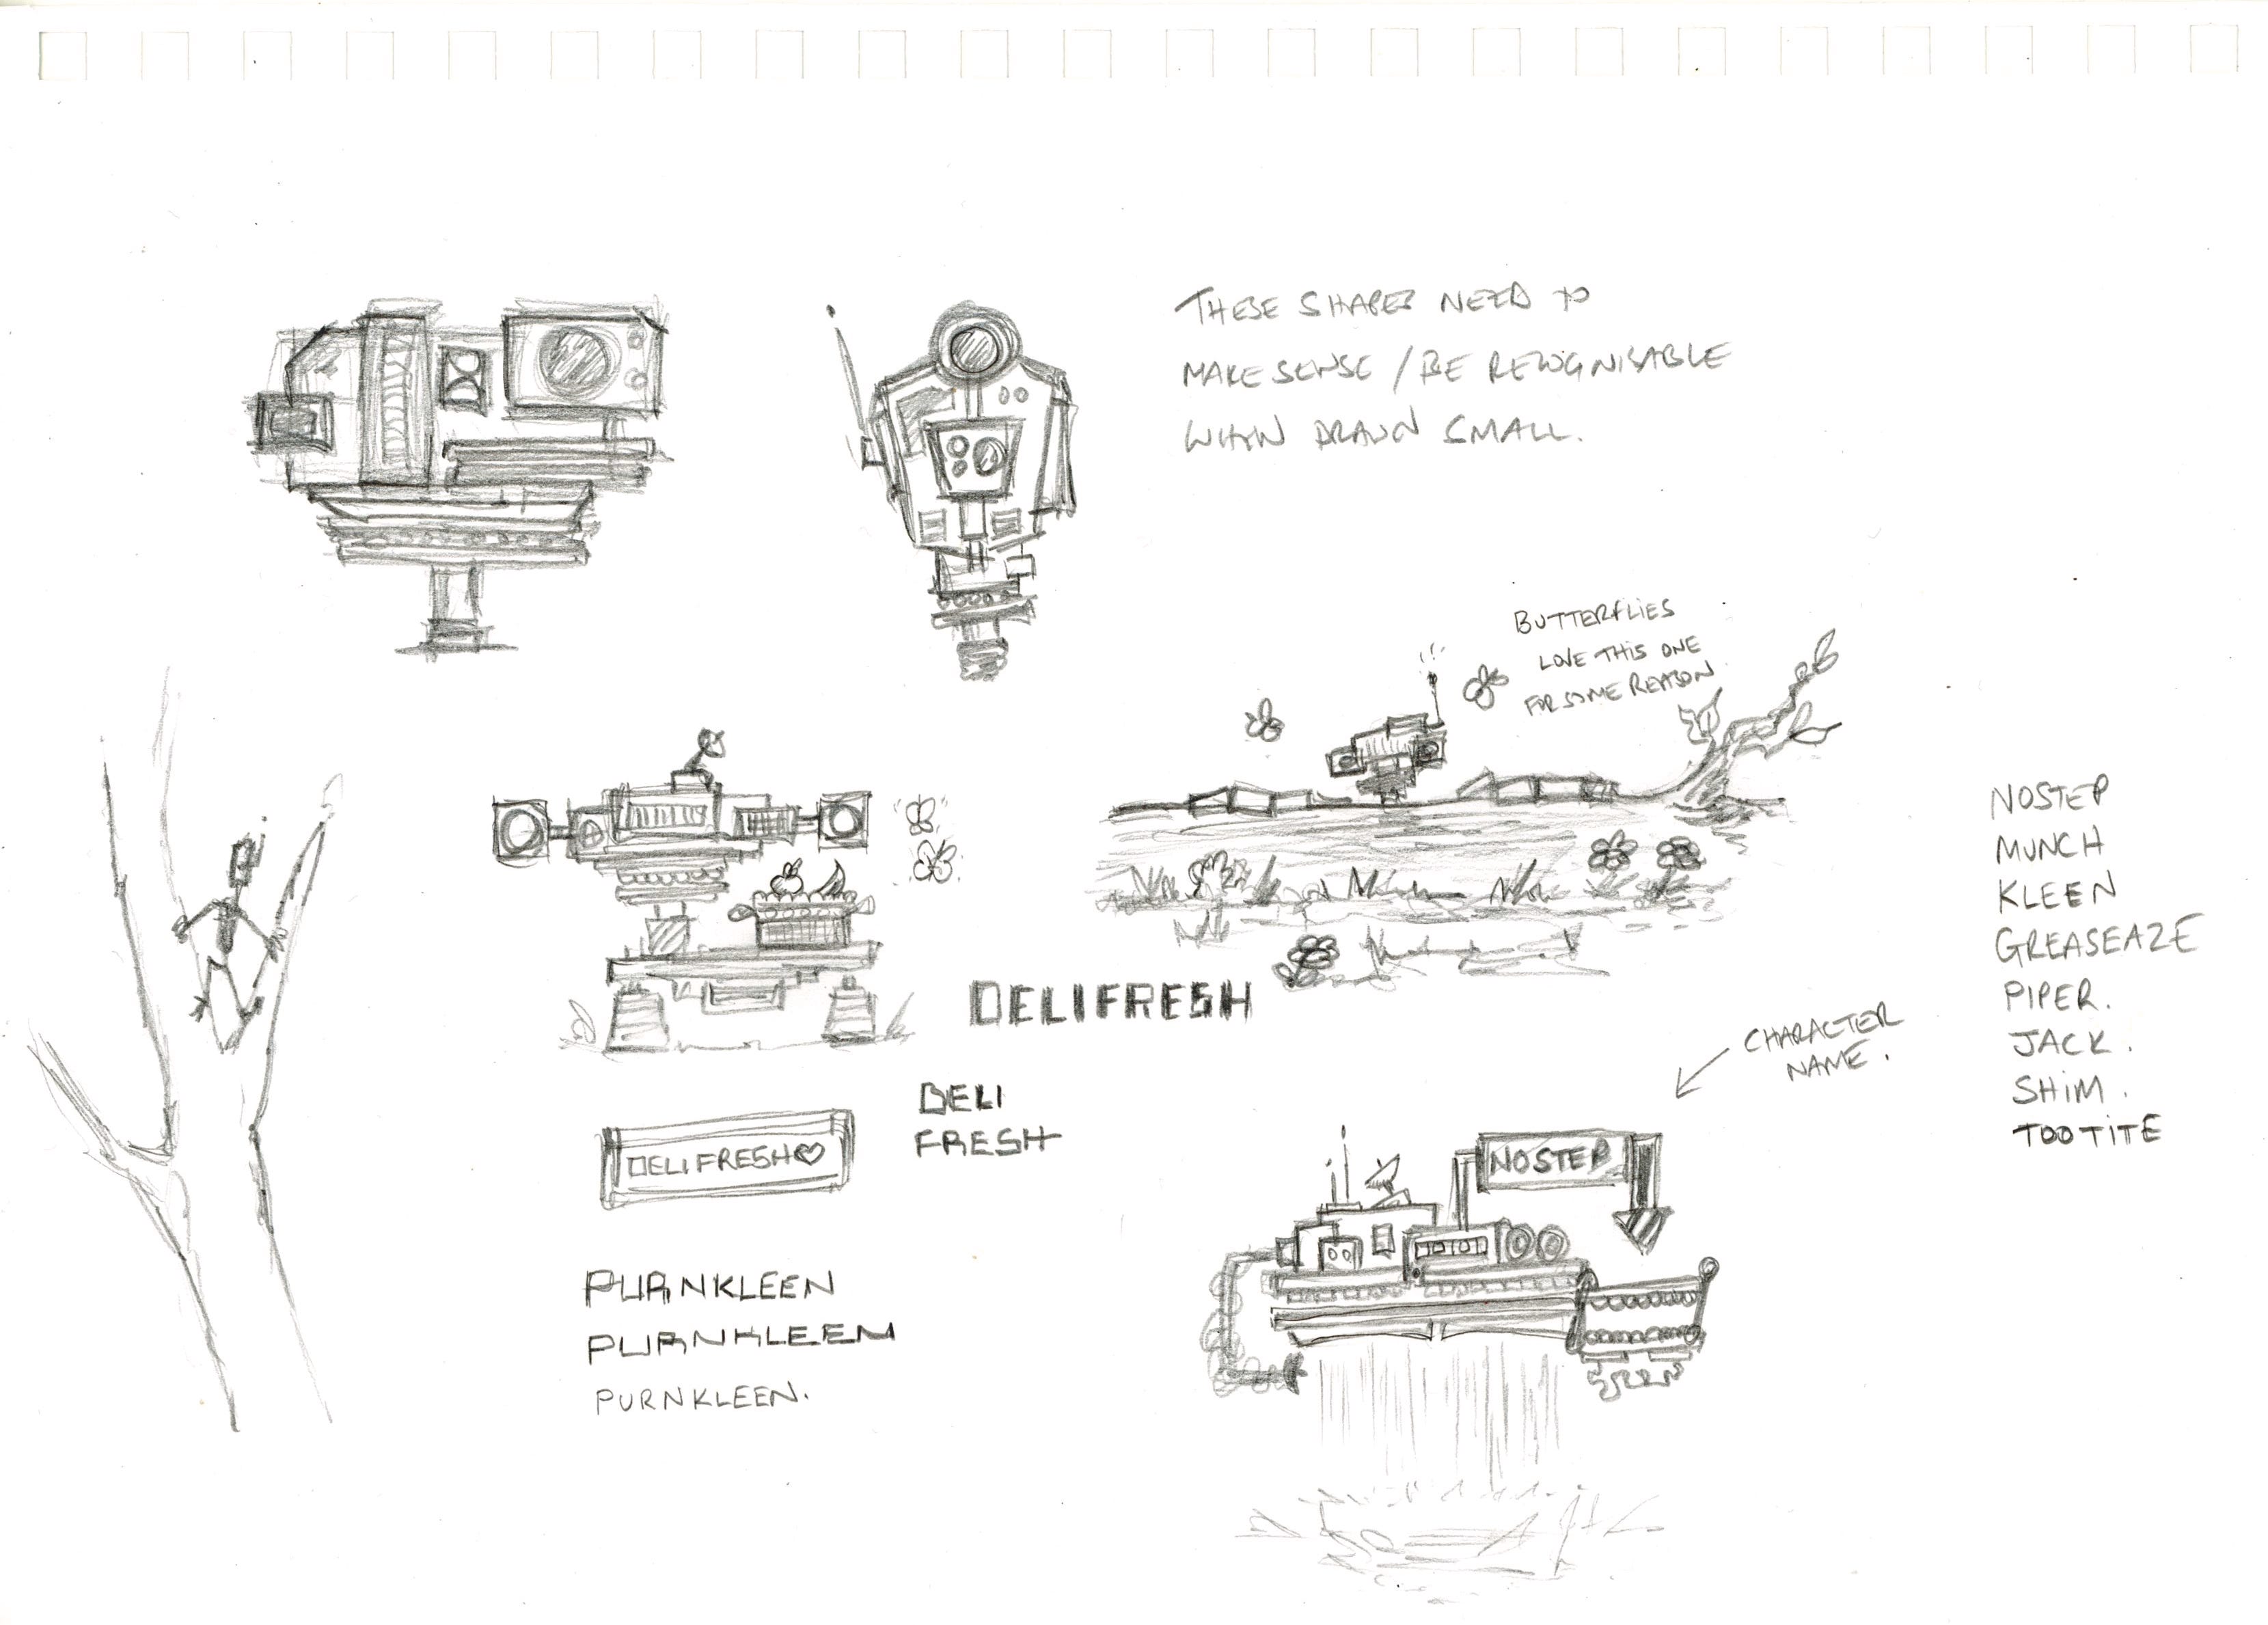 THESE SHAPES NEED TO
MAKE SENSE / BE RECOGNISABLE
WHEN DRAWN SMALL.
BUTTERFLIES
LOVE THIS ONE
FOR SOME REASON
NOSTEP
MUNCH
KLEEN
GREASEAZE
PIPER.
JACK.
SHIM.
TOOTITE
DELIFRESH
CHARACTER
NAME.
DELI
FRESH
DELIFRESH♡
NOSTEP
PURNKLEEN
PURNKLEEN
PURNKLEEN.